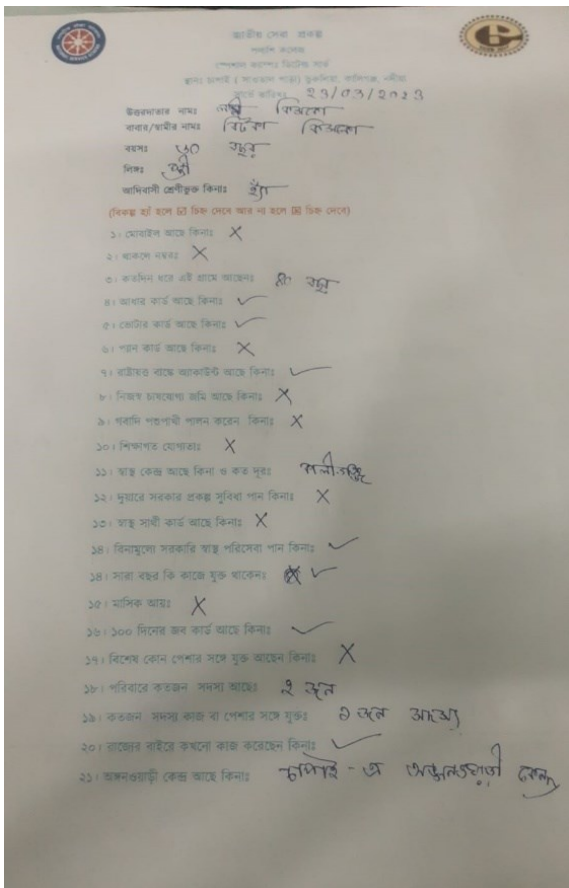 জাতীয় সেবা প্রকল্প
পলাশি কলেজ
স্পেশাল ক্যাম্পঃ ভিলেজ সার্ভে
স্থানঃ চাপাই ( সাওতাল পাড়া) কালিগঞ্জ, নদীয়া
সার্ভে তারিখঃ 23/03/2023
উত্তরদাতার নামঃ
বাবার/স্বামীর নামঃ
বয়সঃ ৬০ বছর
লিঙ্গঃ স্ত্রী
আদিবাসী শ্রেণীভুক্ত কিনাঃ হ্যাঁ
(বিকল্প হ্যাঁ হলে ☑ চিহ্ন দেবে আর না হলে ☒ চিহ্ন দেবে)
১। মোবাইল আছে কিনাঃ ✗
২। থাকলে নম্বরঃ ✗
৩। কতদিন ধরে এই গ্রামে আছেনঃ বছর
৪। আধার কার্ড আছে কিনাঃ ✓
৫। ভোটার কার্ড আছে কিনাঃ ✓
৬। প্যান কার্ড আছে কিনাঃ ✗
৭। রাষ্টায়ত্ত ব্যাঙ্কে অ্যাকাউন্ট আছে কিনাঃ ✓
৮। নিজস্ব চাষযোগ্য জমি আছে কিনাঃ ✗
৯। গবাদি পশুপাখী পালন করেন কিনাঃ ✗
১০। শিক্ষাগত যোগ্যতাঃ ✗
১১। স্বাস্থ্য কেন্দ্র আছে কিনা ও কত দূরঃ
১২। দুয়ারে সরকার প্রকল্প সুবিধা পান কিনাঃ ✗
১৩। স্বাস্থ্য সাথী কার্ড আছে কিনাঃ ✗
১৪। বিনামূল্যে সরকারি স্বাস্থ্য পরিসেবা পান কিনাঃ ✓
১৪। সারা বছর কি কাজে যুক্ত থাকেনঃ ✓
১৫। মাসিক আয়ঃ ✗
১৬। ১০০ দিনের জব কার্ড আছে কিনাঃ ✓
১৭। বিশেষ কোন পেশার সঙ্গে যুক্ত আছেন কিনাঃ ✗
১৮। পরিবারে কতজন সদস্য আছেঃ ২ জন
১৯। কতজন সদস্য কাজ বা পেশার সঙ্গে যুক্তঃ ১ জন সদস্য
২০। রাজ্যের বাইরে কখনো কাজ করেছেন কিনাঃ ✓
২১। অঙ্গনওয়াড়ী কেন্দ্র আছে কিনাঃ চাপাই - এ অঙ্গনওয়াড়ী কেন্দ্র